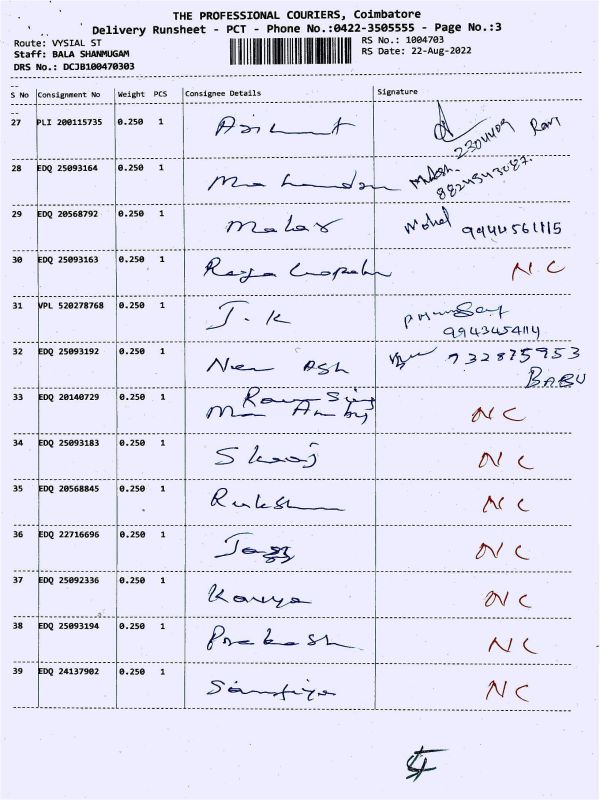 THE PROFESSIONAL COURIERS, Coimbatore
Delivery Runsheet - PCT - Phone No.:0422-3505555 - Page No.:3
Route: VYSIAL ST
Staff: BALA SHANMUGAM
DRS No.: DCJB100470303
RS No.: 1004703
RS Date: 22-Aug-2022
S No Consignment No Weight PCS Consignee Details Signature
27 PLI 200115735 0.250 1 2304409
28 EDQ 25093164 0.250 1
29 EDQ 20568792 0.250 1 Malar 9944561115
30 EDQ 25093163 0.250 1 NC
31 VPL 520278768 0.250 1 J.K
32 EDQ 25093192 0.250 1 BABU
33 EDQ 20140729 0.250 1 NC
34 EDQ 25093183 0.250 1 NC
35 EDQ 20568845 0.250 1 NC
36 EDQ 22716696 0.250 1 NC
37 EDQ 25092336 0.250 1 Kavya NC
38 EDQ 25093194 0.250 1 Prakash NC
39 EDQ 24137902 0.250 1 NC